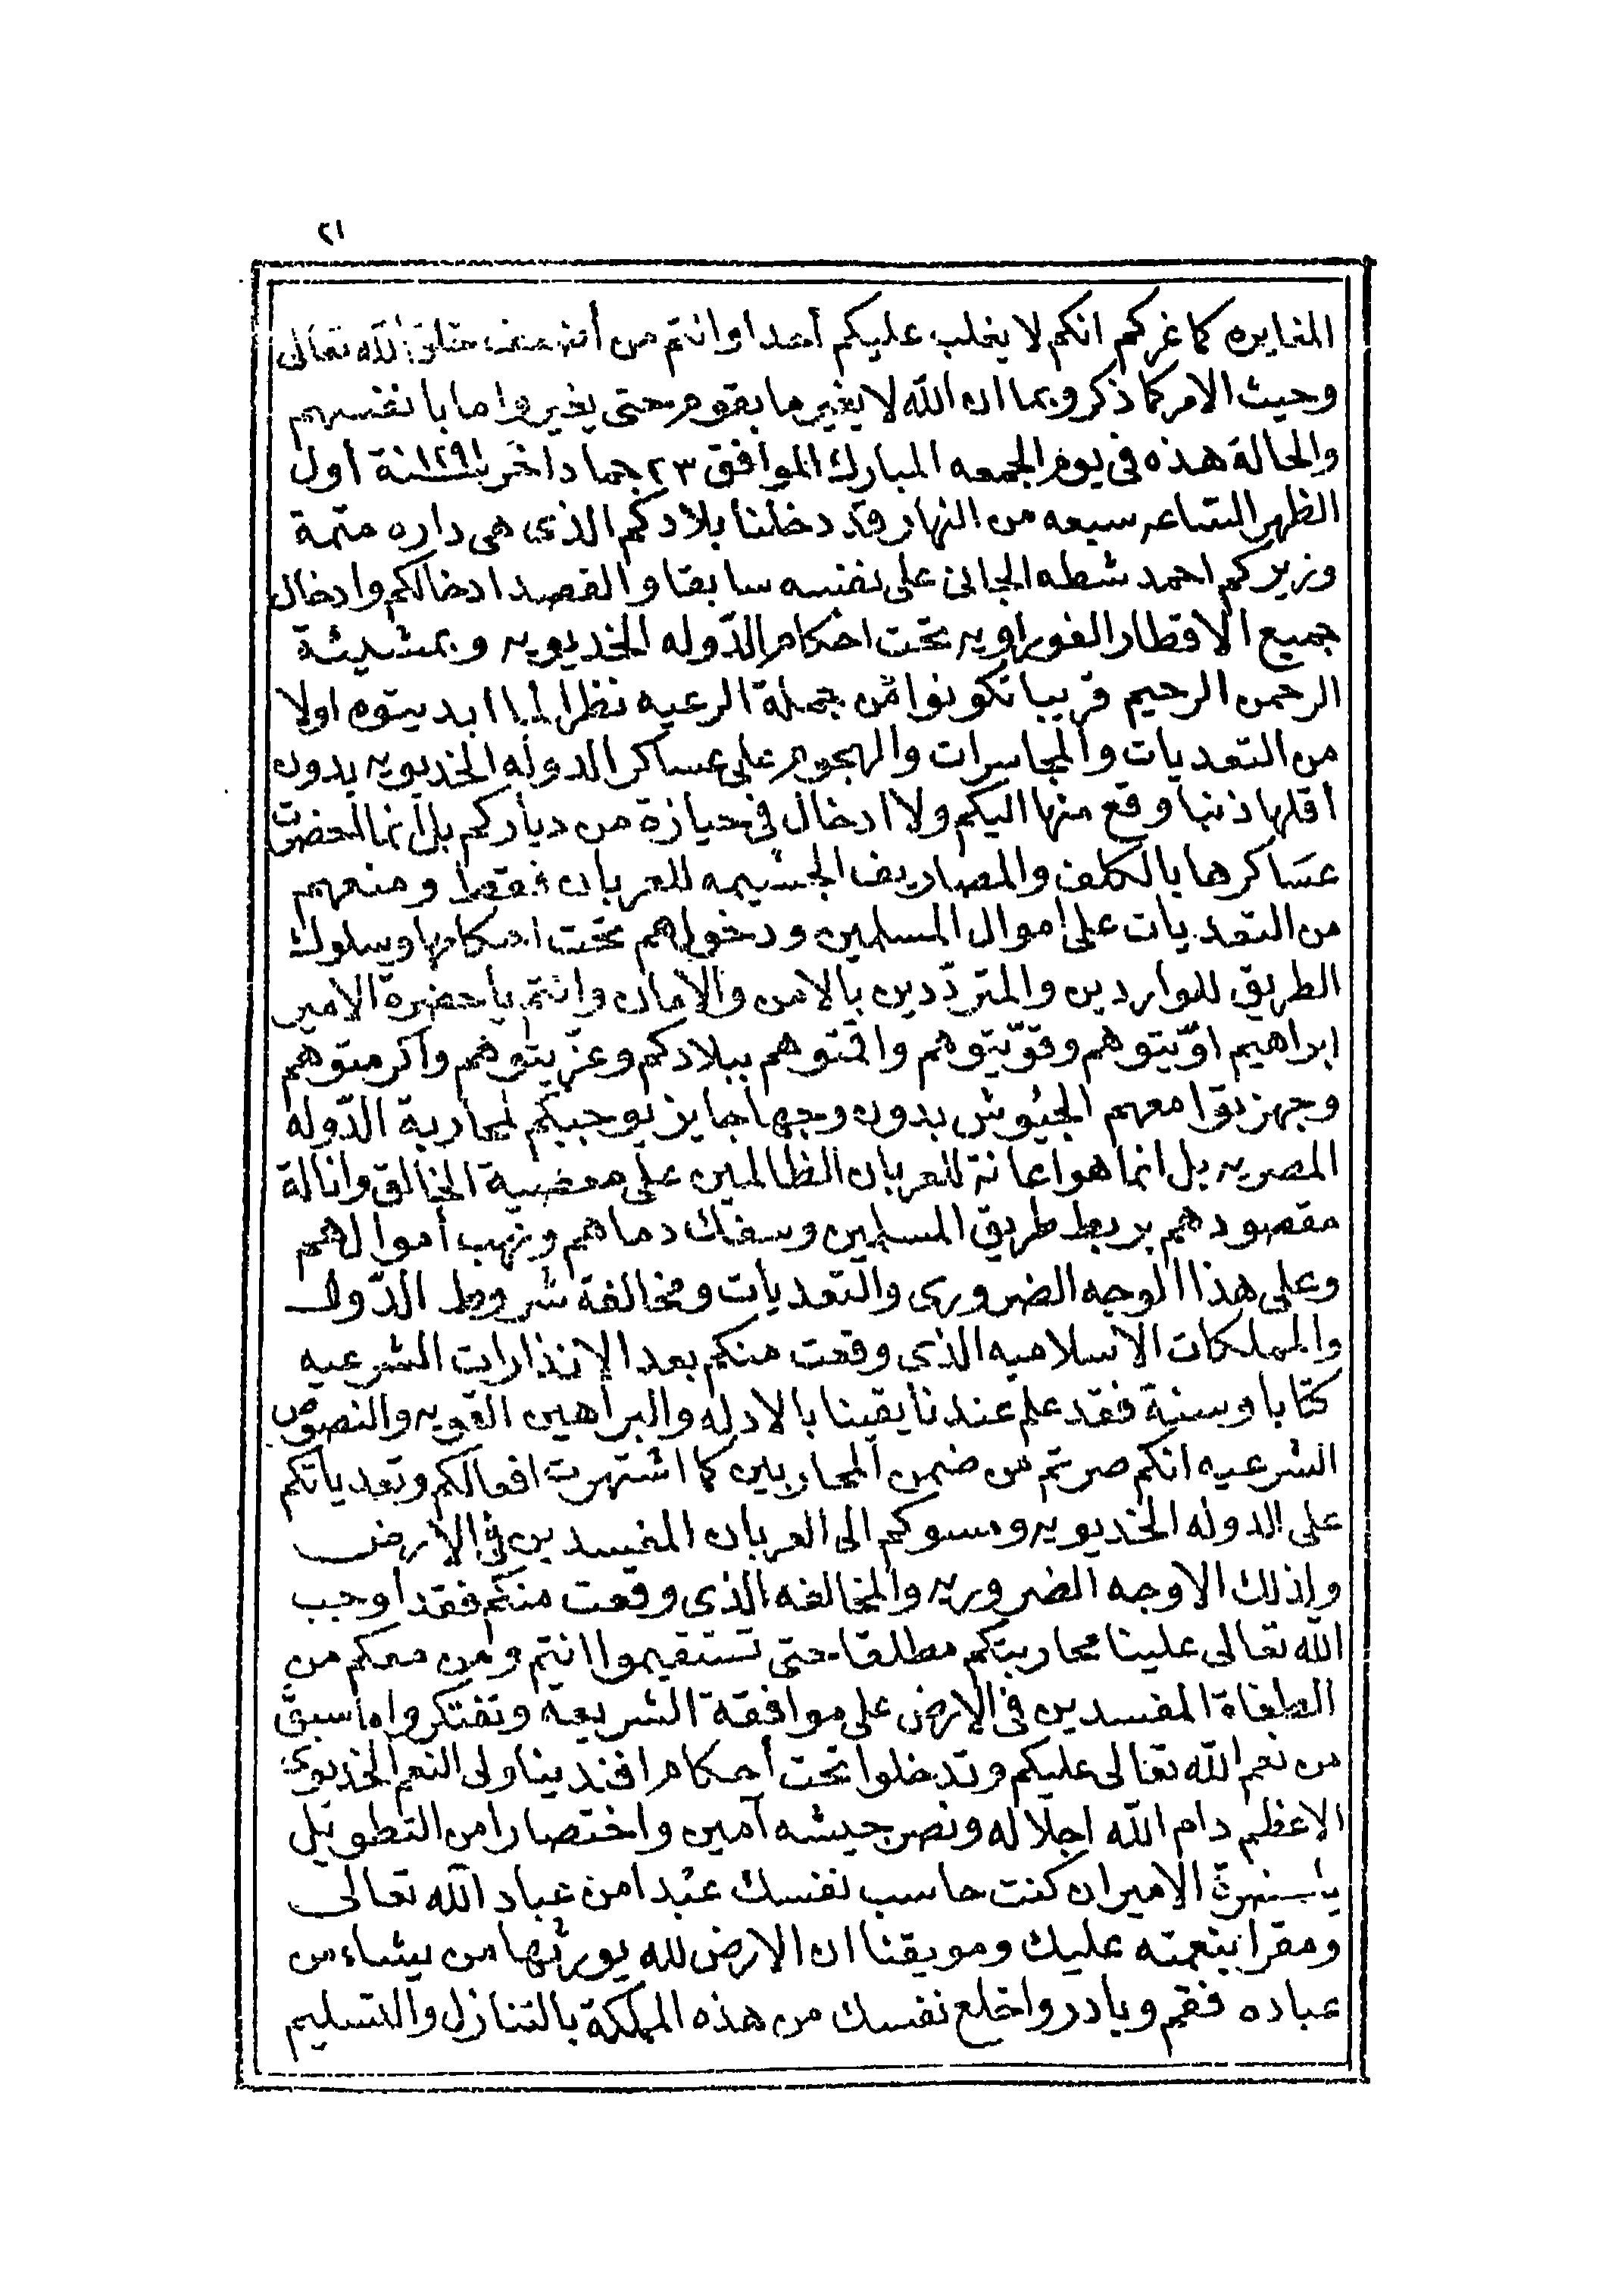 ٢١
المغايره كما غركم انكم لا يغلب عليكم أحدا وانتم من أضعف خلق الله تعالى
وحيث الامر كما ذكر وبما ان الله لا يغير ما بقوم حتى يغيروا ما با نفسهم
والحالة هذه فى يوم الجمعه المبارك الموافق ٢٣ جماد اخر ١٢٩١نة أول
الظهر الساعه سبعه من النهار قد دخلنا بلادكم الذى هى داره متمة
وزيركم احمد شطه الجانى على نفسه سابقا والقصد ادخالكم وادخال
جميع الاقطار الفوراويه تحت احكام الدّوله الخديويه وبمشيئة
الرحمن الرحيم قريبا تكونوا من جملة الرعيه نظرا لما ابديتوه اولا
من التعديات والمجاسرات والهجوم على عساكر الدوله الخديويه بدون
أقلها ذنبا وقع منها اليكم ولا ادخال فى حيازة من دياركم بل انما الحضرت
عساكرها بالكلف والمصاريف الجسيمه للعربان فقط ومنعهم
من التعديات على اموال المسلمين ودخولهم تحت احكامها وسلوك
الطريق للواردين والمتردّدين بالامن والامان وانتم يا حضرة الامير
ابراهيم اوّيتوهم وقوّيتوهم واقمتوهم ببلادكم وعزّيتوهم واكرمتوهم
وجهزتوا معهم الجيوش بدون وجها جايز يوجبكم لمحاربة الدّوله
المصريه بل انما هو اعانة للعربان الظالمين على معصية الخالق وانالة
مقصودهم بربط طريق المسلمين وسفك دماهم ونهب أموالهم
وعلى هذا الوجه الضرورى والتعديات ومخالفة شروط الدّول
والمملكات الاسلاميه الذى وقعت منكم بعد الانذارات الشرعيه
كتابا وسنية فقد علم عندنا يقينا بالادله والبراهين القويه والنصوص
الشرعيه انكم صرتم من ضمن المحاربين كما اشتهرت افعالكم وتعدياتكم
على الدوله الخديويه ومسوكم الى العربان المفسدين فى الارض
ولذلك الاوجه الضروريه والمخالفه الذى وقعت منكم فقد أوجب
الله تعالى علينا محاربتكم مطلقا حتى تستقيموا انتم ومن معكم من
الطغاة المفسدين فى الارض على موافقة الشريعة وتفتكروا ما سبق
من نعم الله تعالى عليكم وتدخلوا تحت أحكام افندينا ولى النعم الخديوى
الاعظم دام الله اجلاله ونصر جيشه آمين واختصارا من التطويل
يا حضرة الامير ان كنت حاسب نفسك عبدا من عباد الله تعالى
ومقرا بنعمته عليك وموقنا ان الارض لله يورثها من يشاء من
عباده فقم وبادر واخلع نفسك من هذه المملكة بالتنازل والتسليم